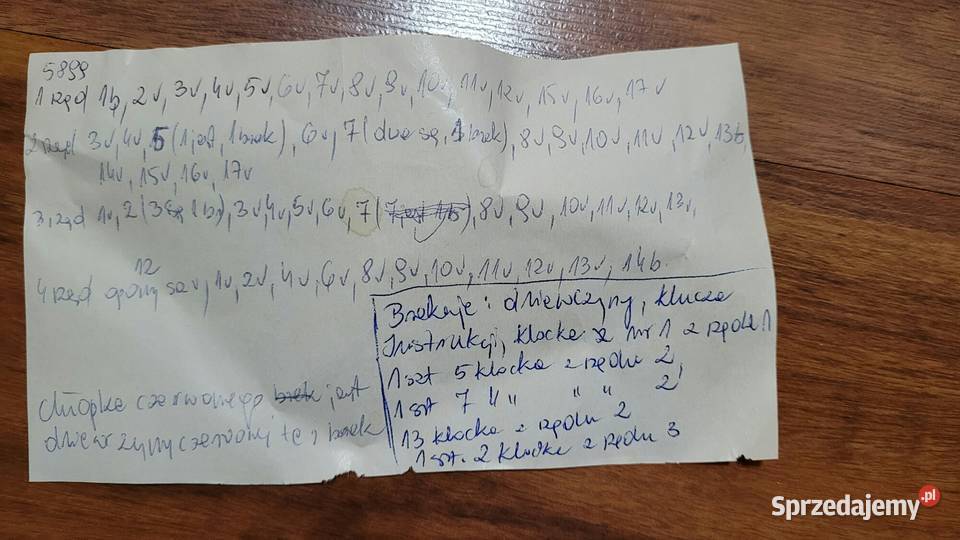 5899
1 rząd 1b, 2v, 3v, 4v, 5v, 6v, 7v, 8v, 9v, 10v, 11v, 12v, 15v, 16v, 17v
2 rząd 3v, 4v, 5 (1 jest, 1 brak), 6v, 7 (dwa są, 1 brak), 8v, 9v, 10v, 11v, 12v, 13b,
14v, 15v, 16v, 17v
3 rząd 1v, 2 (3 są 1 b), 3v, 4v, 5v, 6v, 7, 8v, 9v, 10v, 11v, 12v, 13v,
12
4 rząd opony są v, 1v, 2v, 4v, 6v, 8v, 9v, 10v, 11v, 12v, 13v, 14b
Brakuje: dziewczyny, klucza
Instrukcji, klocka z nr 1 z rzędu 1
1szt 5 klocka z rzędu 2,
1szt 7 " " " " 2,
13 klocka z rzędu 2
1szt. 2 klocka z rzędu 3
chłopka czerwonego brak jest
dziewczyny czerwonej też brak
Sprzedajemy.pl